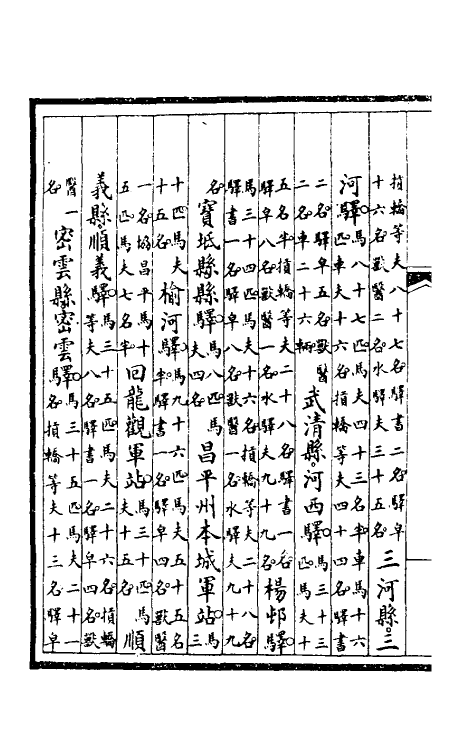 摃轎等夫八十七名驛書二名驛皁十六名獸醫二名水驛夫三十五名三河縣。三
河驛。馬八十七匹馬夫四十三名半車馬十六匹車夫十六名摃轎等夫四十四名驛書
二名驛皁五名獸醫二名車二十六輛武清縣。河西驛。馬三十三匹馬夫十
五名半摃轎等夫二十八名驛書一名驛皁八名獸醫一名水驛夫九十九名楊邨驛
馬三十四匹馬夫十六名摃轎等夫二十八名驛書一名驛皁八名獸醫一名水驛夫九十九
名寶坻縣縣驛。馬八匹馬夫四名昌平州本城軍站。馬三
十匹馬夫十五名榆河驛。馬九十六匹馬夫五十五名驛書一名驛皁四名獸醫
一名協昌平馬十五匹馬夫七名半回龍觀軍站。馬三十匹馬夫十五名順
義縣順義驛。馬三十五匹馬夫二十六名摃轎等夫八名驛書一名驛皁四名獸
醫一名密雲縣密雲驛。馬三十五匹馬夫二十一名摃轎等夫十三名驛皁